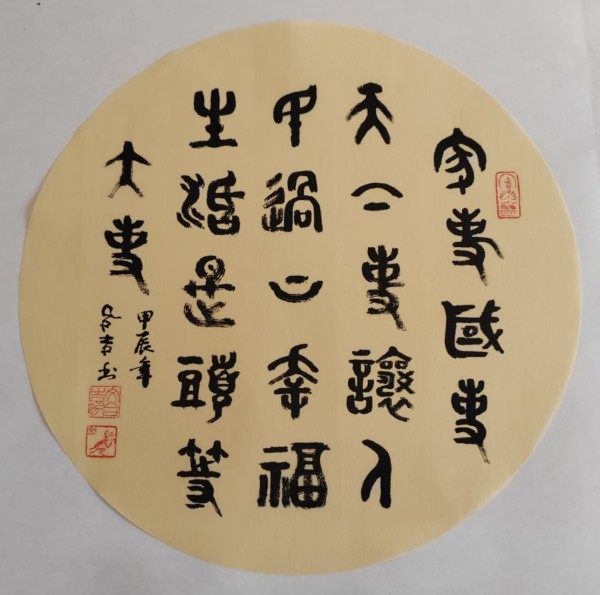 家事國事
天下事讓人
民過上幸福
生活是頭等
大事
甲辰年